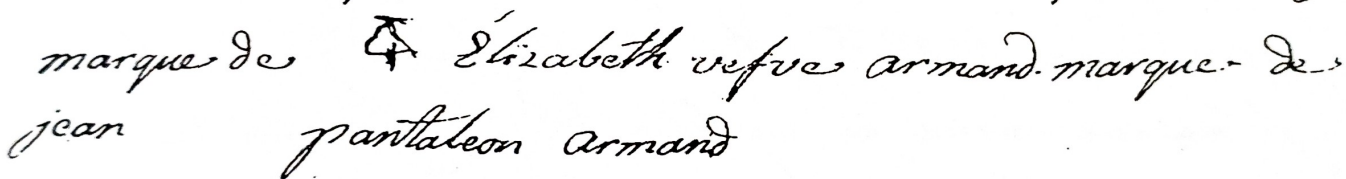 marque de Élizabeth vefve armand. marque - de
jean pantaléon armand